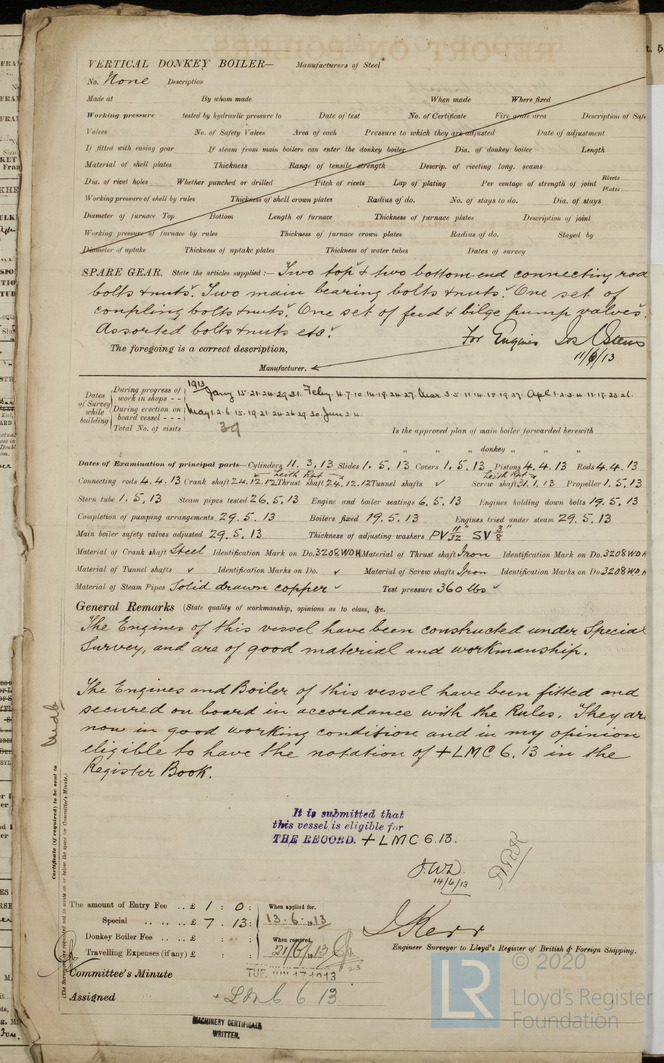 VERTICAL DONKEY BOILER— Manufacturers of Steel
No. None Description
Made at By whom made When made Where fixed
Working pressure tested by hydraulic pressure to Date of test No. of Certificate Fire grate area Description of Safe
Valves No. of Safety Valves Area of each Pressure to which they are adjusted Date of adjustment
If fitted with easing gear If steam from main boilers can enter the donkey boiler Dia. of donkey boiler Length
Material of shell plates Thickness Range of tensile strength Descrip. of riveting long. seams
Dia. of rivet holes Whether punched or drilled Pitch of rivets Lap of plating Per centage of strength of joint Rivets Plates
Working pressure of shell by rules Thickness of shell crown plates Radius of do. No. of stays to do. Dia. of stays
Diameter of furnace Top Bottom Length of furnace Thickness of furnace plates Description of joint
Working pressure of furnace by rules Thickness of furnace crown plates Radius of do. Stayed by
Diameter of uptake Thickness of uptake plates Thickness of water tubes Dates of survey
SPARE GEAR. State the articles supplied:— Two top & two bottom end connecting rod
bolts & nuts. Two main bearing bolts & nuts. One set of
coupling bolts & nuts. One set of feed & bilge pump valves.
Assorted bolts & nuts etc.
The foregoing is a correct description, For Engines
11/6/13
Manufacturer.
Dates of Survey while building
During progress of work in shops - - 1913 Jany 15. 21. 24. 29. 31. Feby. 4. 7. 10. 14. 18. 24. 27. Mar. 3. 5. 11. 14. 18. 19. 27. Apl. 1. 2. 3. 4. 11. 17. 23. 26.
During erection on board vessel - - - May 1. 2. 6. 15. 19. 21. 24. 26. 29. 30. June 2. 4.
Total No. of visits 39 Is the approved plan of main boiler forwarded herewith
" " " donkey " " "
Dates of Examination of principal parts—Cylinders 11. 3. 13 Slides 1. 5. 13 Covers 1. 5. 13 Pistons 4. 4. 13 Rods 4. 4. 13
Leith Rpt Leith Rpt
Connecting rods 4. 4. 13 Crank shaft 24. 12. 12 Thrust shaft 24. 12. 12 Tunnel shafts ✓ Screw shaft 31. 1. 13 Propeller 1. 5. 13
Stern tube 1. 5. 13 Steam pipes tested 26. 5. 13 Engine and boiler seatings 6. 5. 13 Engines holding down bolts 19. 5. 13
Completion of pumping arrangements 29. 5. 13 Boilers fixed 19. 5. 13 Engines tried under steam 29. 5. 13
Main boiler safety valves adjusted 29. 5. 13 Thickness of adjusting washers PV 11/32" SV 3/8"
Material of Crank shaft Steel Identification Mark on Do. 3208 WDH Material of Thrust shaft Iron Identification Mark on Do. 3208 WDH
Material of Tunnel shafts ✓ Identification Marks on Do. ✓ Material of Screw shafts Iron Identification Marks on Do. 3208 WDH
Material of Steam Pipes Solid drawn copper ✓ Test pressure 360 lbs ✓
General Remarks (State quality of workmanship, opinions as to class, &c.
The Engines of this vessel have been constructed under Special
Survey, and are of good material and workmanship.
The Engines and Boiler of this vessel have been fitted and
secured on board in accordance with the Rules. They are
now in good working condition and in my opinion
eligible to have the notation of +LMC 6. 13 in the
Register Book.
Certificate (if required) to be sent to
It is submitted that
this vessel is eligible for
THE RECORD. + LMC 6. 13.
J.W.D.
14/6/13
The amount of Entry Fee .. £ 1 : 0 : When applied for,
Special .. .. .. £ 7 . 13 : 13. 6. 1913
Donkey Boiler Fee .. .. £ : : When received,
Travelling Expenses (if any) £ : : 21/6/1913
J Kerr
Engineer Surveyor to Lloyd's Register of British & Foreign Shipping.
Committee's Minute TUE. JUN 17 1913
Assigned + LMC 6 13
MACHINERY CERTIFICATE
WRITTEN.
LR
© 2020
Lloyd's Register
Foundation